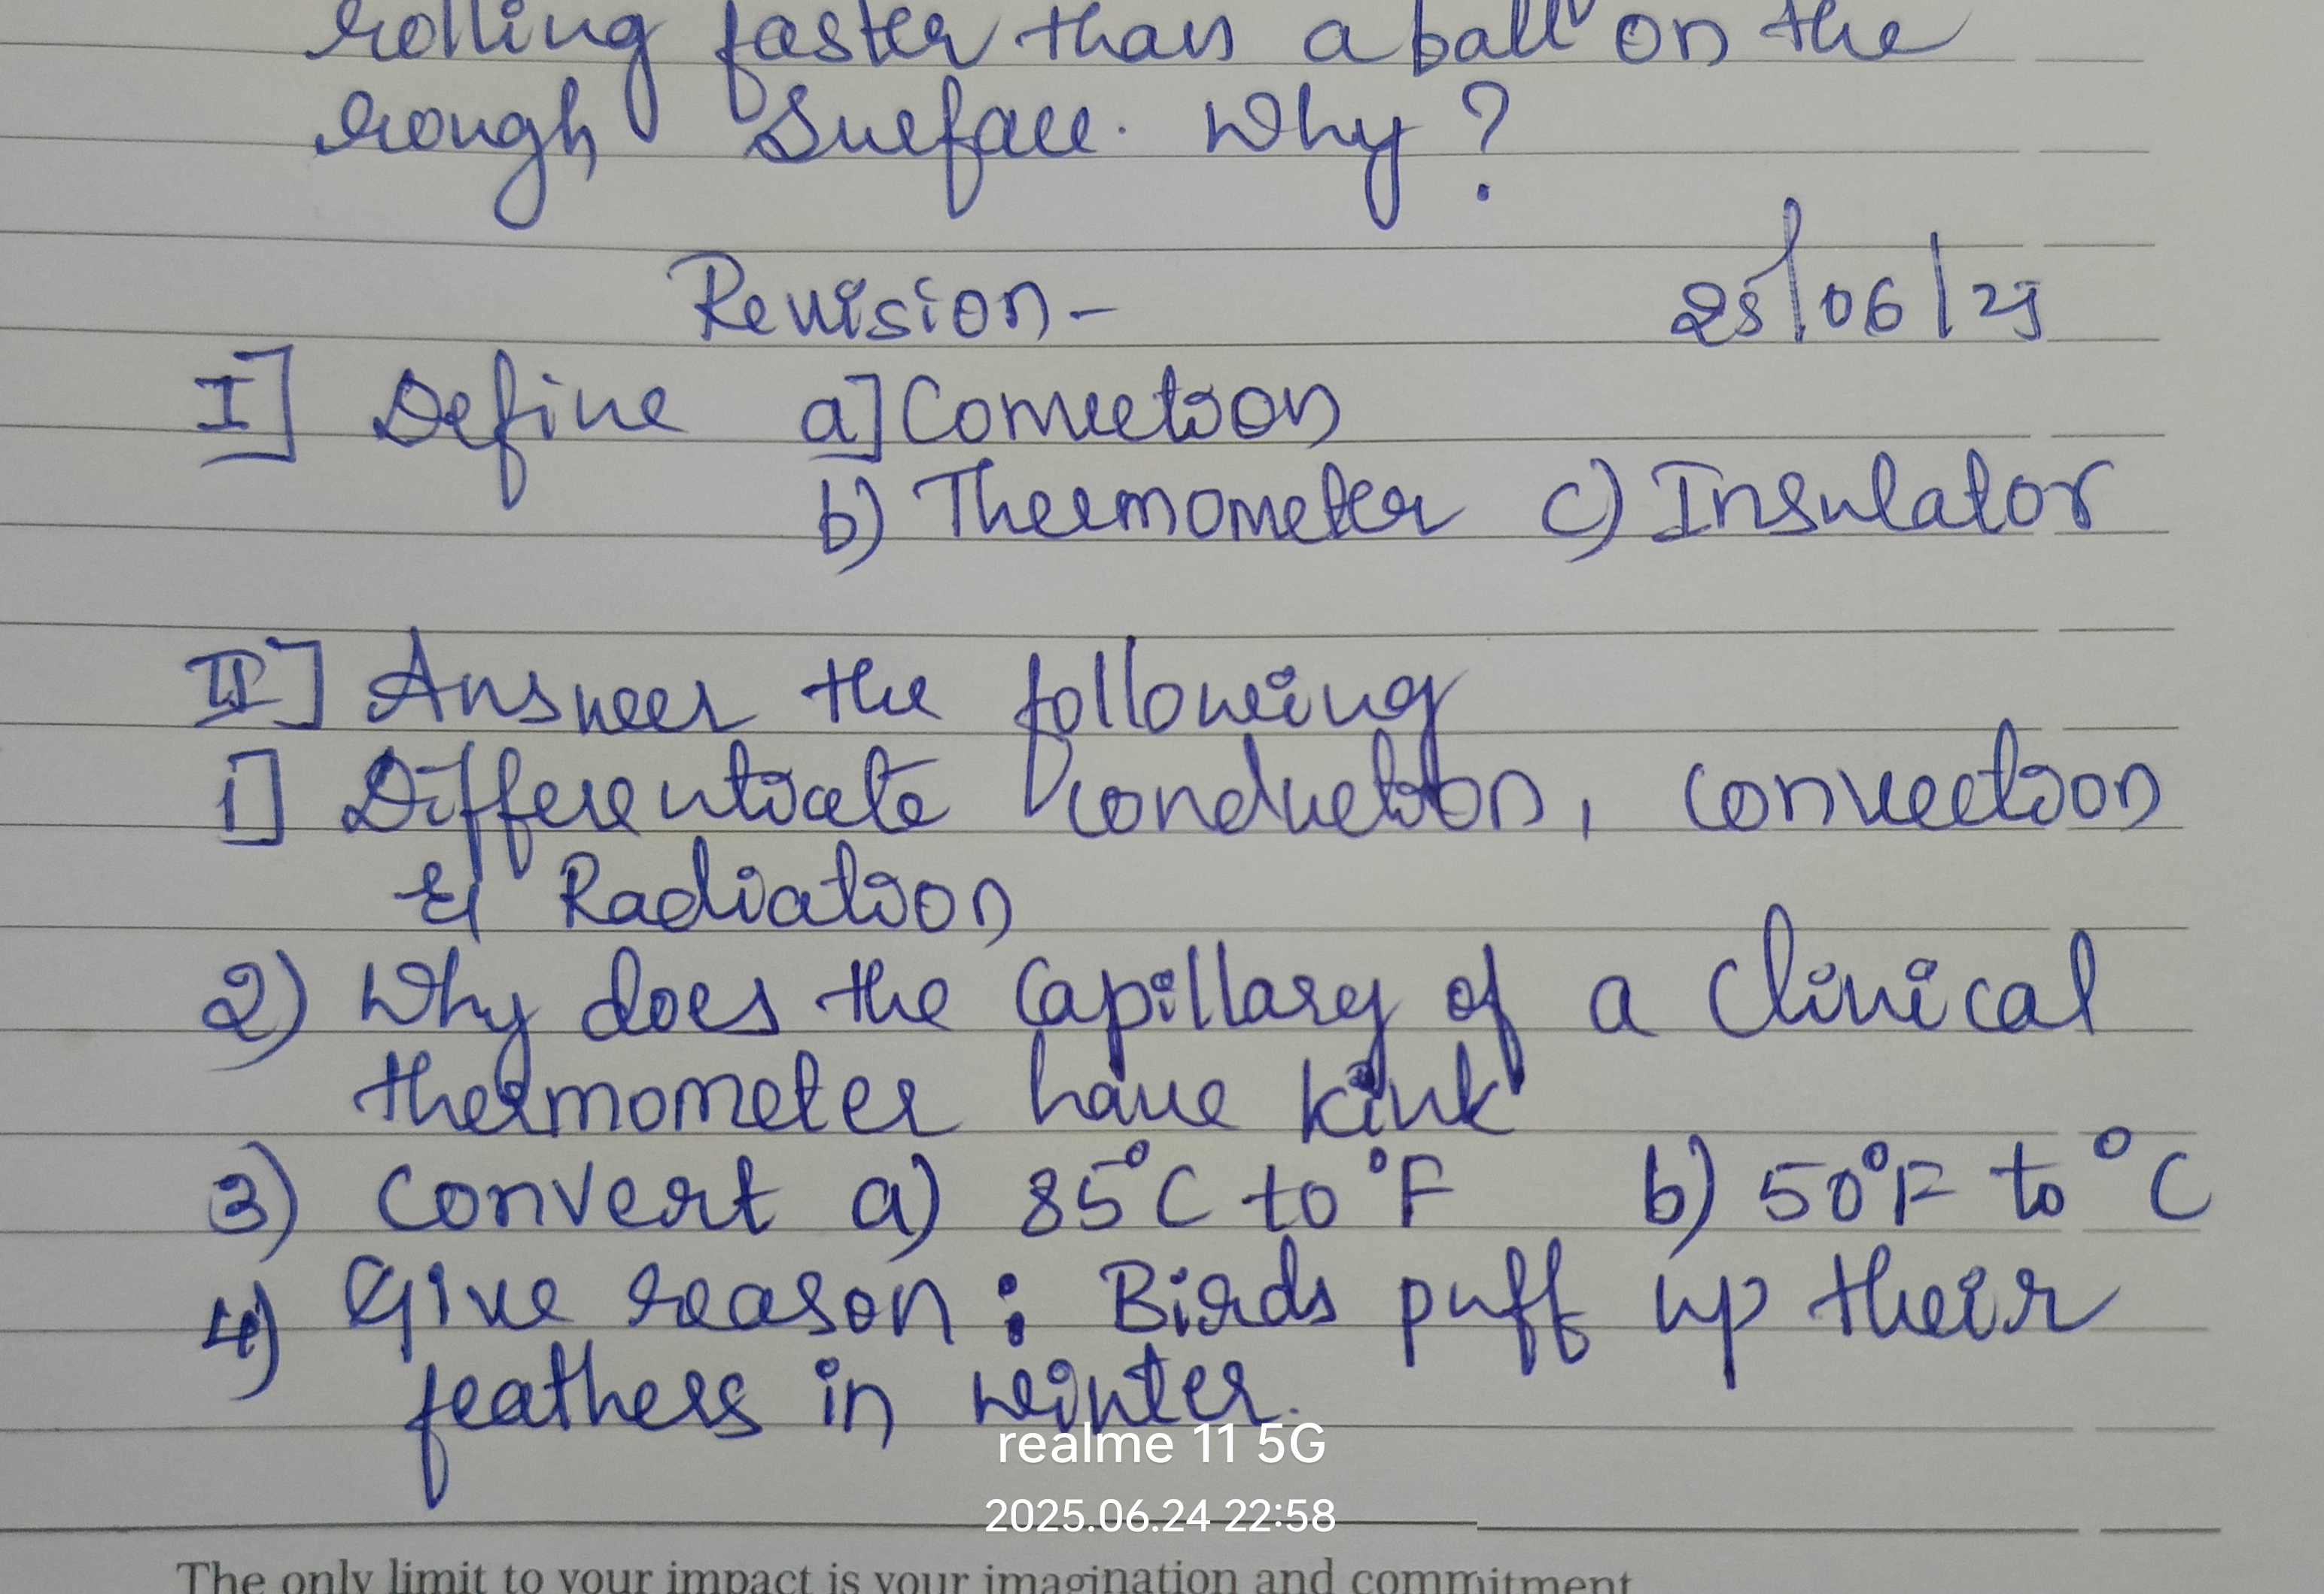 rolling faster than a ball on the
rough surface. Why?
Revision- 25/06/25
I] Define a] Convection
b) Thermometer c) Insulator
II] Answer the following
1] Differentiate conduction, convection
& Radiation
2) Why does the capillary of a clinical
thermometer have kink
3) Convert a) 85°C to °F b) 50°F to °C
4) Give reason: Birds puff up their
feathers in winter.
realme 11 5G
2025.06.24 22:58
The only limit to your impact is your imagination and commitment